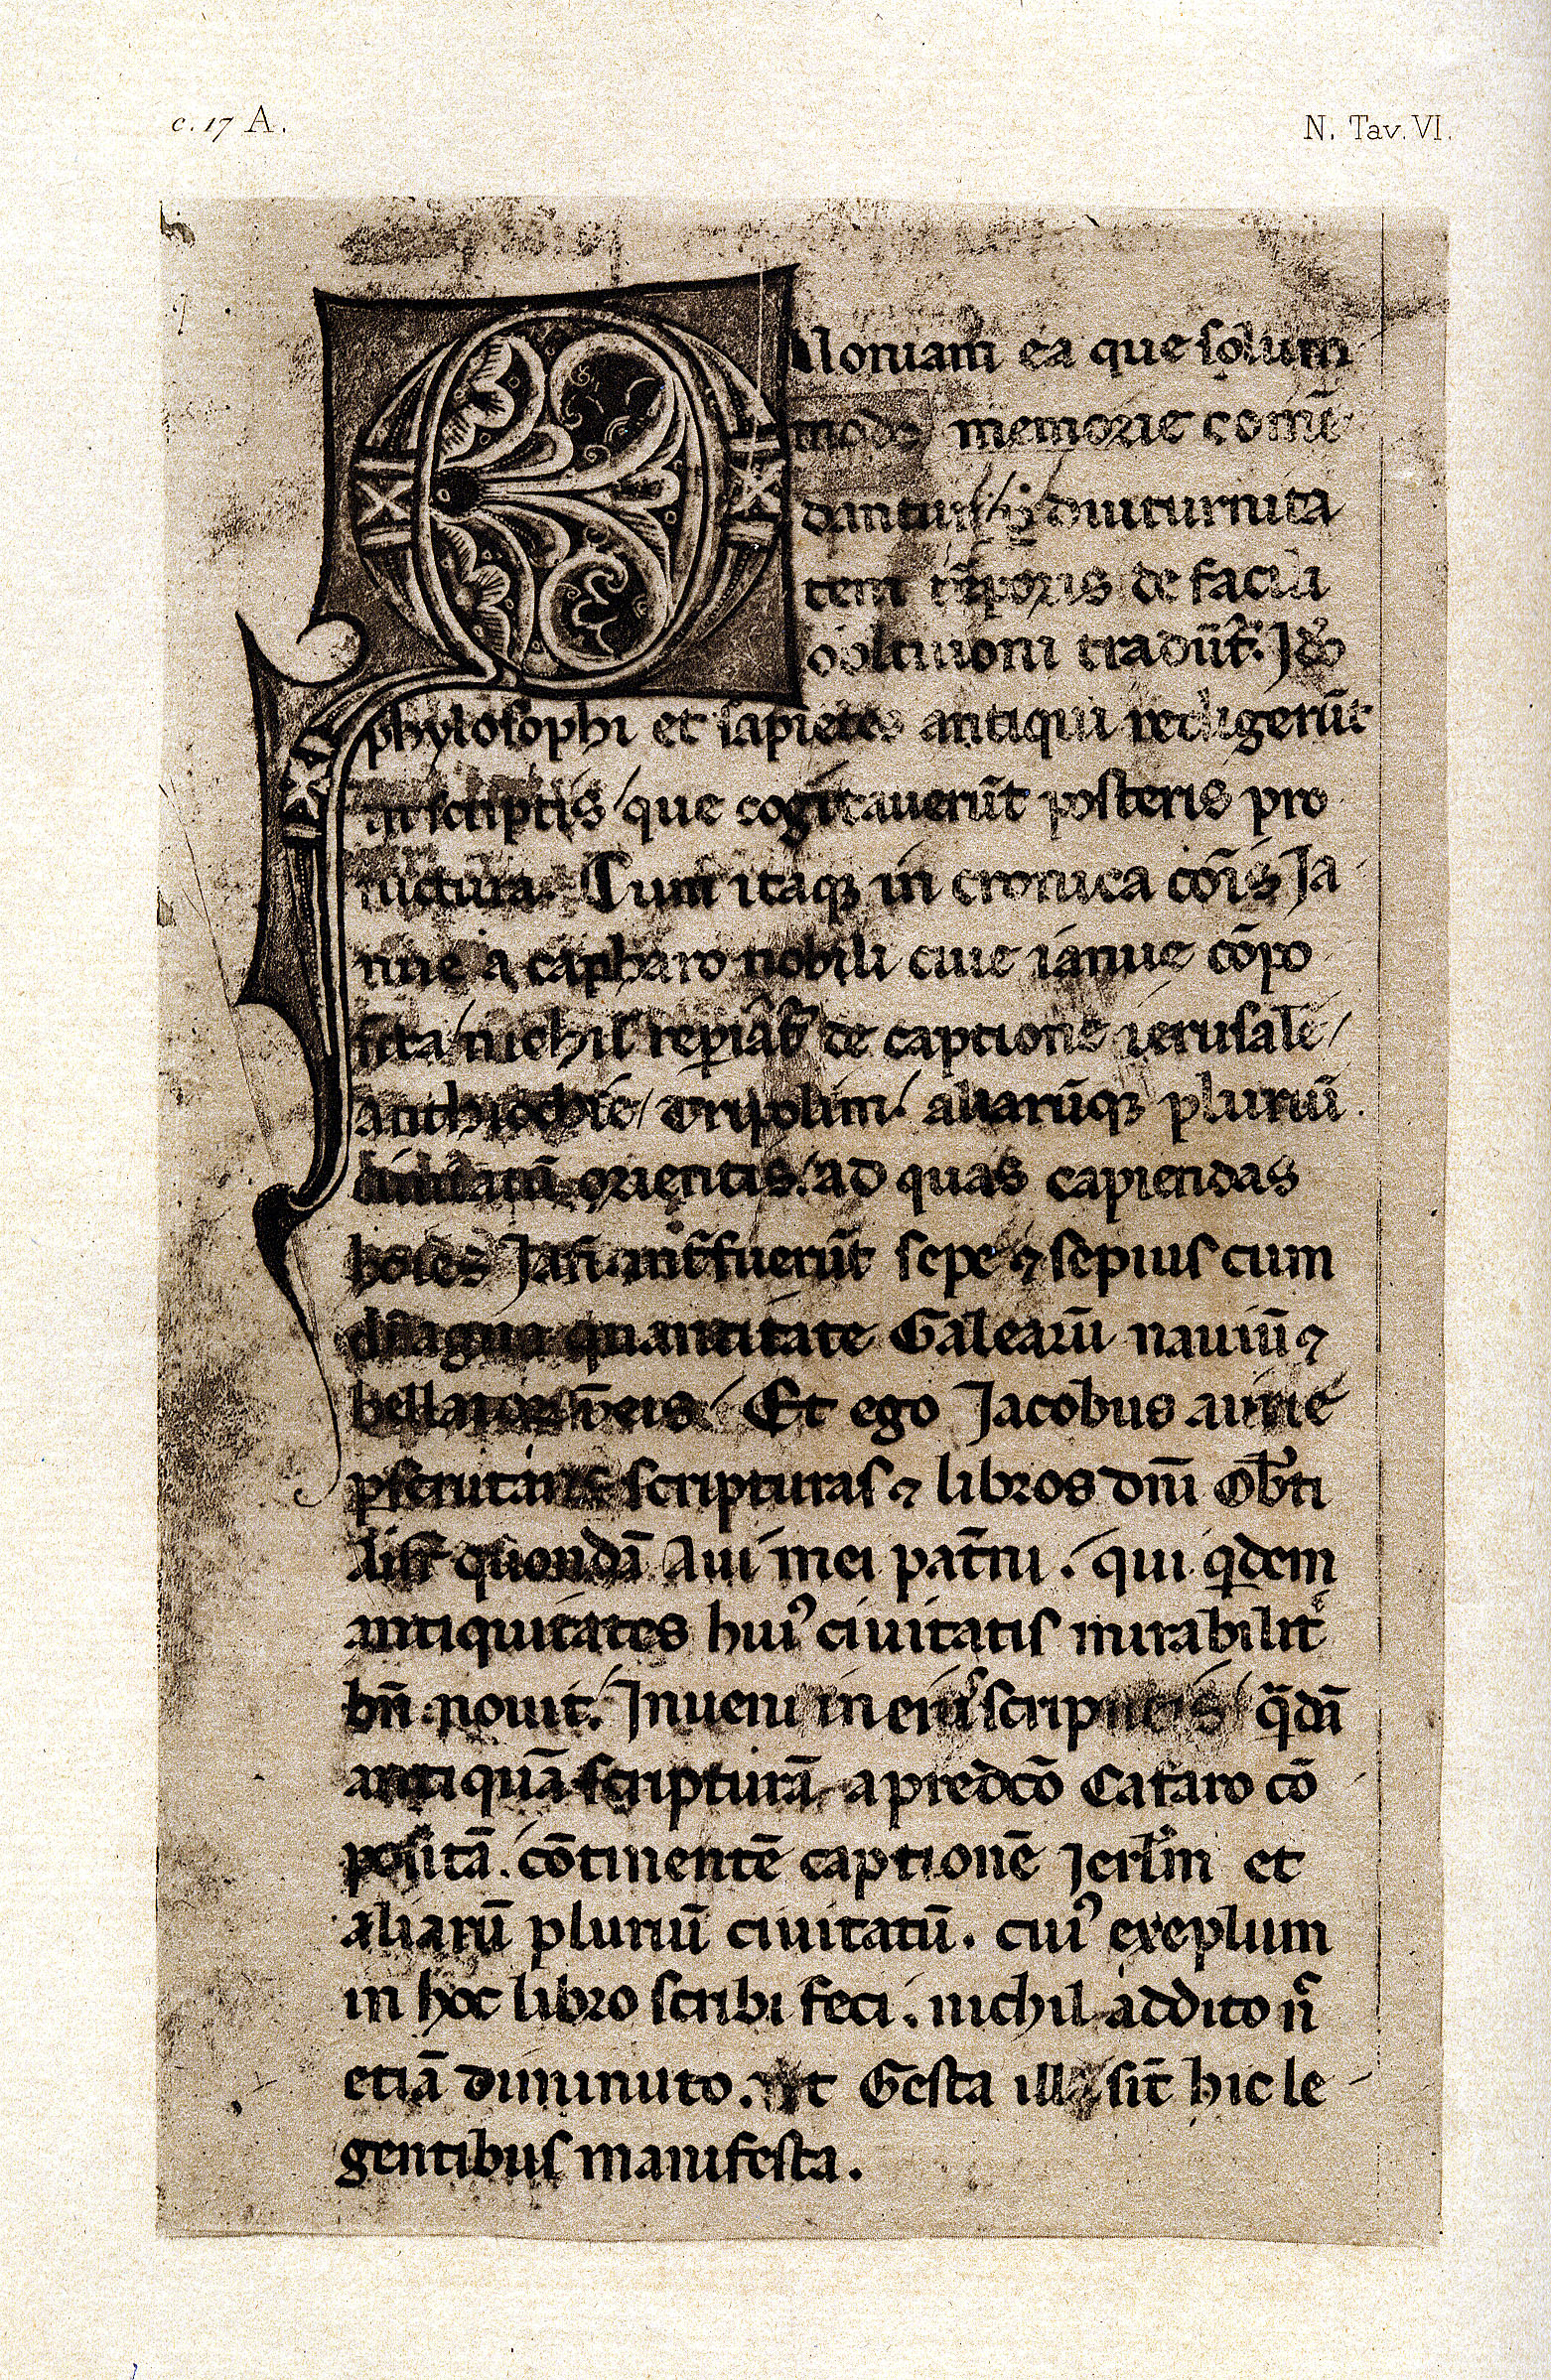 c. 17 A.
N. Tav. VI.
Quoniam ea que solum
modo memorie comē
dantur / ꝓpt̄ diuturnita
tem tēporis de facili
obliuioni tradūt᷑. Ido
phylosophi et sapiētes antiqui redigerūt
in scriptis / que cogitauerūt posteris pro
fuctura. Cum itaqꝫ in cronica cōīs Ja
nue a capharo nobili ciue ianue cōpo
sita / nichil reperiat᷑ de captione ierusalē /
anthiochie / tripolim / aliarūqꝫ pluriū
ciuitatū orientis / ad quas capiendas
hoīes Jan̄. int̄fuerūt sepe ⁊ sepius cum
magna quantitate Galearū nauiū ⁊
bellatoꝝ / Et ego Jacobus aurie
ꝑscrutans scripturas ⁊ libros dn̄i Ob̄ti
aur̄ quondā Aui mei pat̄ni. qui qͥdem
antiquitates huiꝰ ciuitatis mirabilit᷑
bn̄ nouit. Inueni in eiuˢ scripturis / qᷓdā
antiquā scripturā a predc̄o Cafaro cō
positā. cōtinentē captionē Jerl̄m et
aliarū pluriū ciuitatū. cuiꝰ exēplum
in hoc libro scribi feci. nichil addito n̄
etiā diminuto. ut Gesta illa sīt hic le
gentibus manifesta.